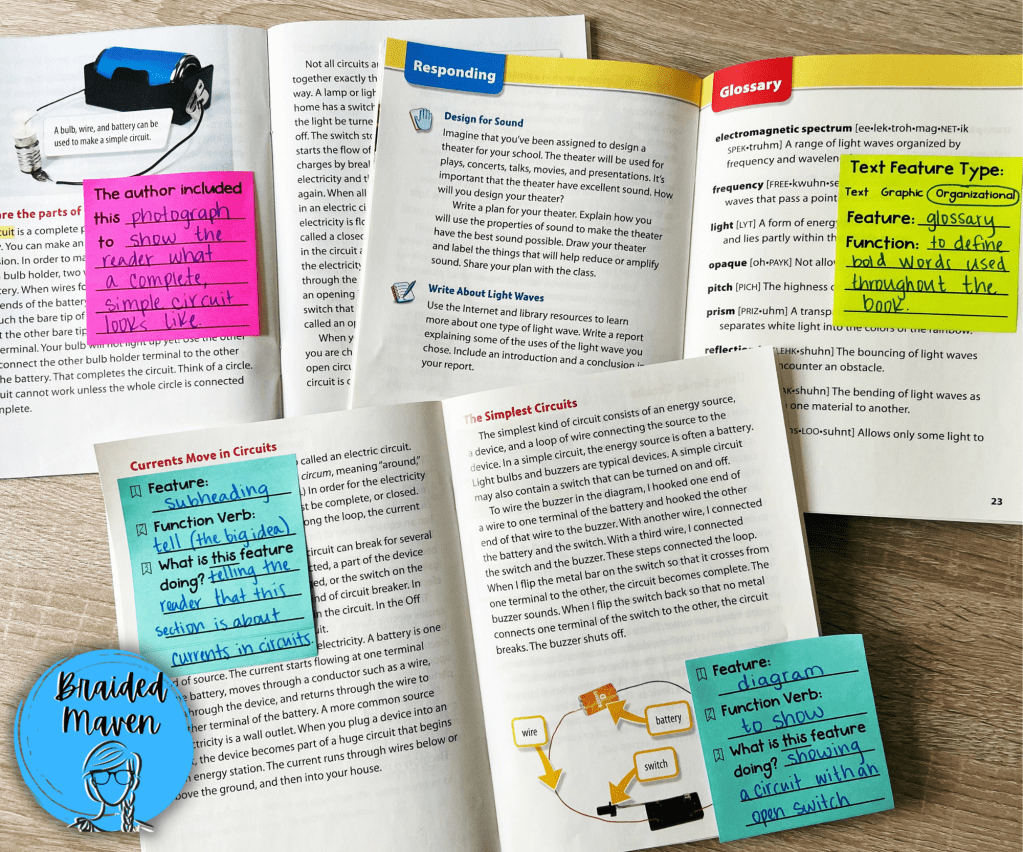 A bulb, wire, and battery can be
used to make a simple circuit.
are the parts of
cuit is a complete p
. You can make an
sion. In order to ma
bulb holder, two
y. When wires fo
ends of the batter
uch the bare tip of
t the other bare tip
erminal. Your bulb will not light up yet. Use the other
connect the other bulb holder terminal to the other
he battery. That completes the circuit. Think of a circle.
uit cannot work unless the whole circle is connected
mplete.
The author included
this photograph
to show the
reader what
a complete,
simple circuit
looks like.
Not all circuits a
together exactly th
way. A lamp or ligh
home has a switch
the light be turne
off. The switch sto
starts the flow of
charges by breal
electricity and t
again. When all
in an electric ci
electricity is flo
called a closed
in the circuit a
the electricity
through the
an opening
switch that
called an op
When y
you are ch
open circu
circuit is c
Responding
Design for Sound
Imagine that you've been assigned to design a
theater for your school. The theater will be used for
plays, concerts, talks, movies, and presentations. It's
important that the theater have excellent sound. How
will you design your theater?
Write a plan for your theater. Explain how you
will use the properties of sound to make the theater
have the best sound possible. Draw your theater
and label the things that will help reduce or amplify
sound. Share your plan with the class.
Write About Light Waves
Use the Internet and library resources to learn
more about one type of light wave. Write a report
explaining some of the uses of the light wave you
chose. Include an introduction and a conclusion in
your report.
Glossary
electromagnetic spectrum [ee•lek•troh•mag•NET•ik
SPEK•truhm] A range of light waves organized by
frequency and wavelen
frequency [FREE•kwuhn•se
waves that pass a point
light [LYT] A form of energy
and lies partly within th
opaque [oh•PAYK] Not allo
pitch [PICH] The highness o
prism [PRIZ•uhm] A transp
separates white light into the colors of the rainbow.
reflection [LEHK•shuhn] The bouncing of light waves
ncounter an obstacle.
AK•shuhn] The bending of light waves as
one material to another.
ns•LOO•suhnt] Allows only some light to
23
Text Feature Type:
Text Graphic Organizational
Feature: glossary
Function: to define
bold words used
throughout the
book.
Currents Move in Circuits
called an electric circuit.
circum, meaning "around,"
.) In order for the electricity
st be complete, or closed.
ong the loop, the current
circuit can break for several
cted, a part of the device
ed, or the switch on the
nd of circuit breaker. In
n the circuit. In the Off
uit.
electricity. A battery is one
d of source. The current starts flowing at one terminal
e battery, moves through a conductor such as a wire,
hrough the device, and returns through the wire to
her terminal of the battery. A more common source
ctricity is a wall outlet. When you plug a device into an
, the device becomes part of a huge circuit that begins
n energy station. The current runs through wires below or
bove the ground, and then into your house.
Feature:
subheading
Function Verb:
tell (the big idea)
What is this feature
doing? telling the
reader that this
section is about
currents in circuits.
The Simplest Circuits
The simplest kind of circuit consists of an energy source,
a device, and a loop of wire connecting the source to the
device. In a simple circuit, the energy source is often a battery.
Light bulbs and buzzers are typical devices. A simple circuit
may also contain a switch that can be turned on and off.
To wire the buzzer in the diagram, I hooked one end of
a wire to one terminal of the battery and hooked the other
end of that wire to the buzzer. With another wire, I connected
the battery and the switch. With a third wire, I connected
the switch and the buzzer. These steps connected the loop.
When I flip the metal bar on the switch so that it crosses from
one terminal to the other, the circuit becomes complete. The
buzzer sounds. When I flip the switch back so that no metal
connects one terminal of the switch to the other, the circuit
breaks. The buzzer shuts off.
wire
battery
switch
Feature:
diagram
Function Verb:
to show
What is this feature
doing? showing
a circuit with an
open switch
Braided
Maven